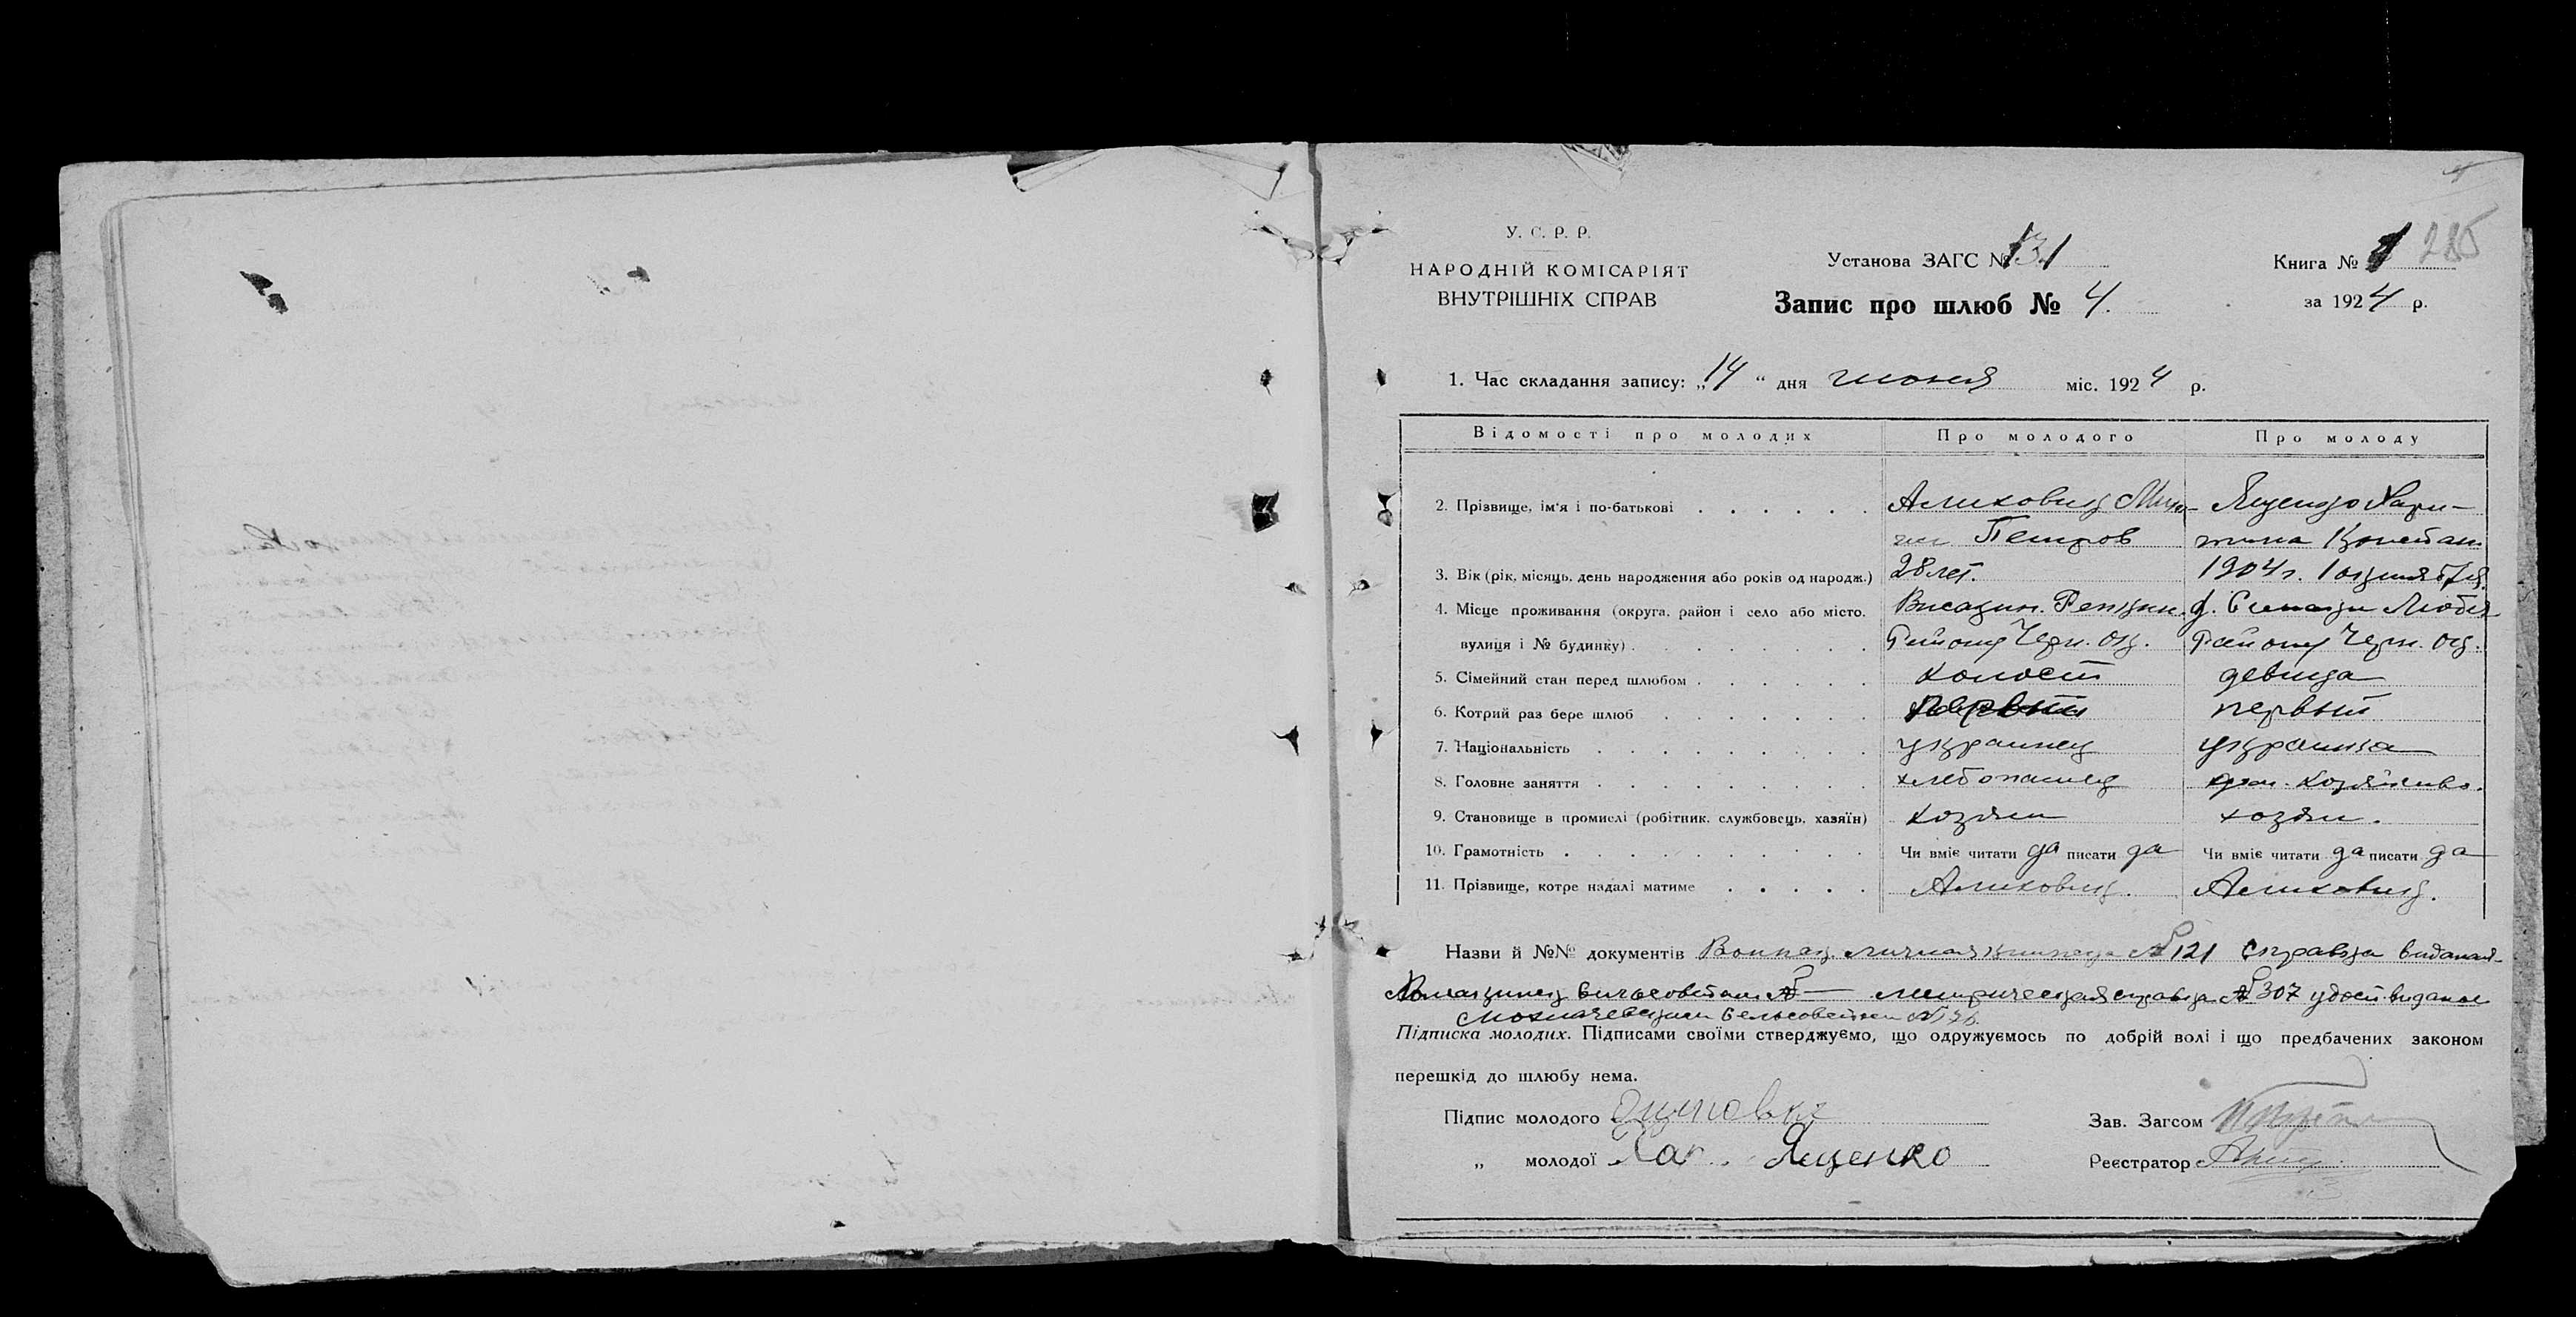 У. С. Р. Р.
НАРОДНІЙ КОМІСАРІЯТ
ВНУТРІШНІХ СПРАВ
Установа ЗАГС № 131
Запис про шлюб № 4.
Книга № 1 285
за 1924 р.
1. Час складання запису: „14“ дня июня міс. 1924 р.
Відомості про молодих Про молодого Про молоду
2. Прізвище, ім'я і по-батькові Ященко Хари-
Петров тина Констан
3. Вік (рік, місяць, день народження або років од народж.) 28 лет. 1904 г.
4. Місце проживання (округа, район і село або місто, Любеч
вулиця і № будинку) Району Черн. ок. Району Черн. ок.
5. Сімейний стан перед шлюбом холост девица
6. Котрий раз бере шлюб первый первый
7. Національність украинец украинка
8. Головне заняття хлебопашец дом. хозяйство.
9. Становище в промислі (робітник, службовець, хазяїн) хозяин хозяин.
10. Грамотність Чи вміє читати да писати да Чи вміє читати да писати да
11. Прізвище, котре надалі матиме
Назви й №№ документів личная книжка № 121 справка выданая
сельсоветом № — метрическая справка № 307 удост. выданое
сельсоветом №
Підписка молодих. Підписами своїми стверджуємо, що одружуємось по добрій волі і що предбачених законом
перешкід до шлюбу нема.
Підпис молодого
„ молодої Хар. Ященко
Зав. Загсом
Реєстратор